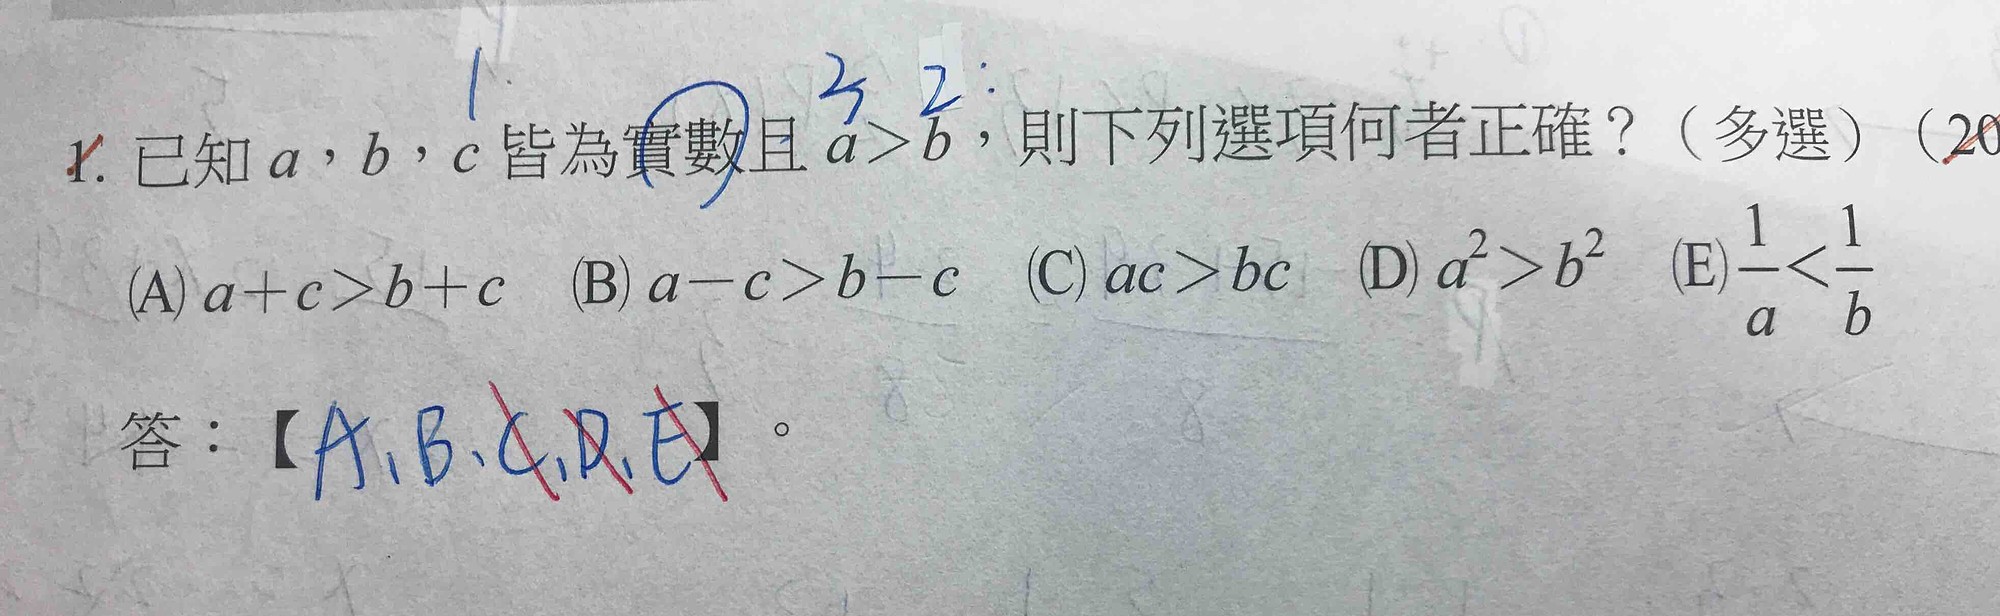 1. 3 2
1. 已知 a，b，c 皆為實數且 a＞b，則下列選項何者正確？（多選）（20
(A) a＋c＞b＋c (B) a－c＞b－c (C) ac＞bc (D) a²＞b² (E) 1/a＜1/b
答：【A、B、C、D、E】。